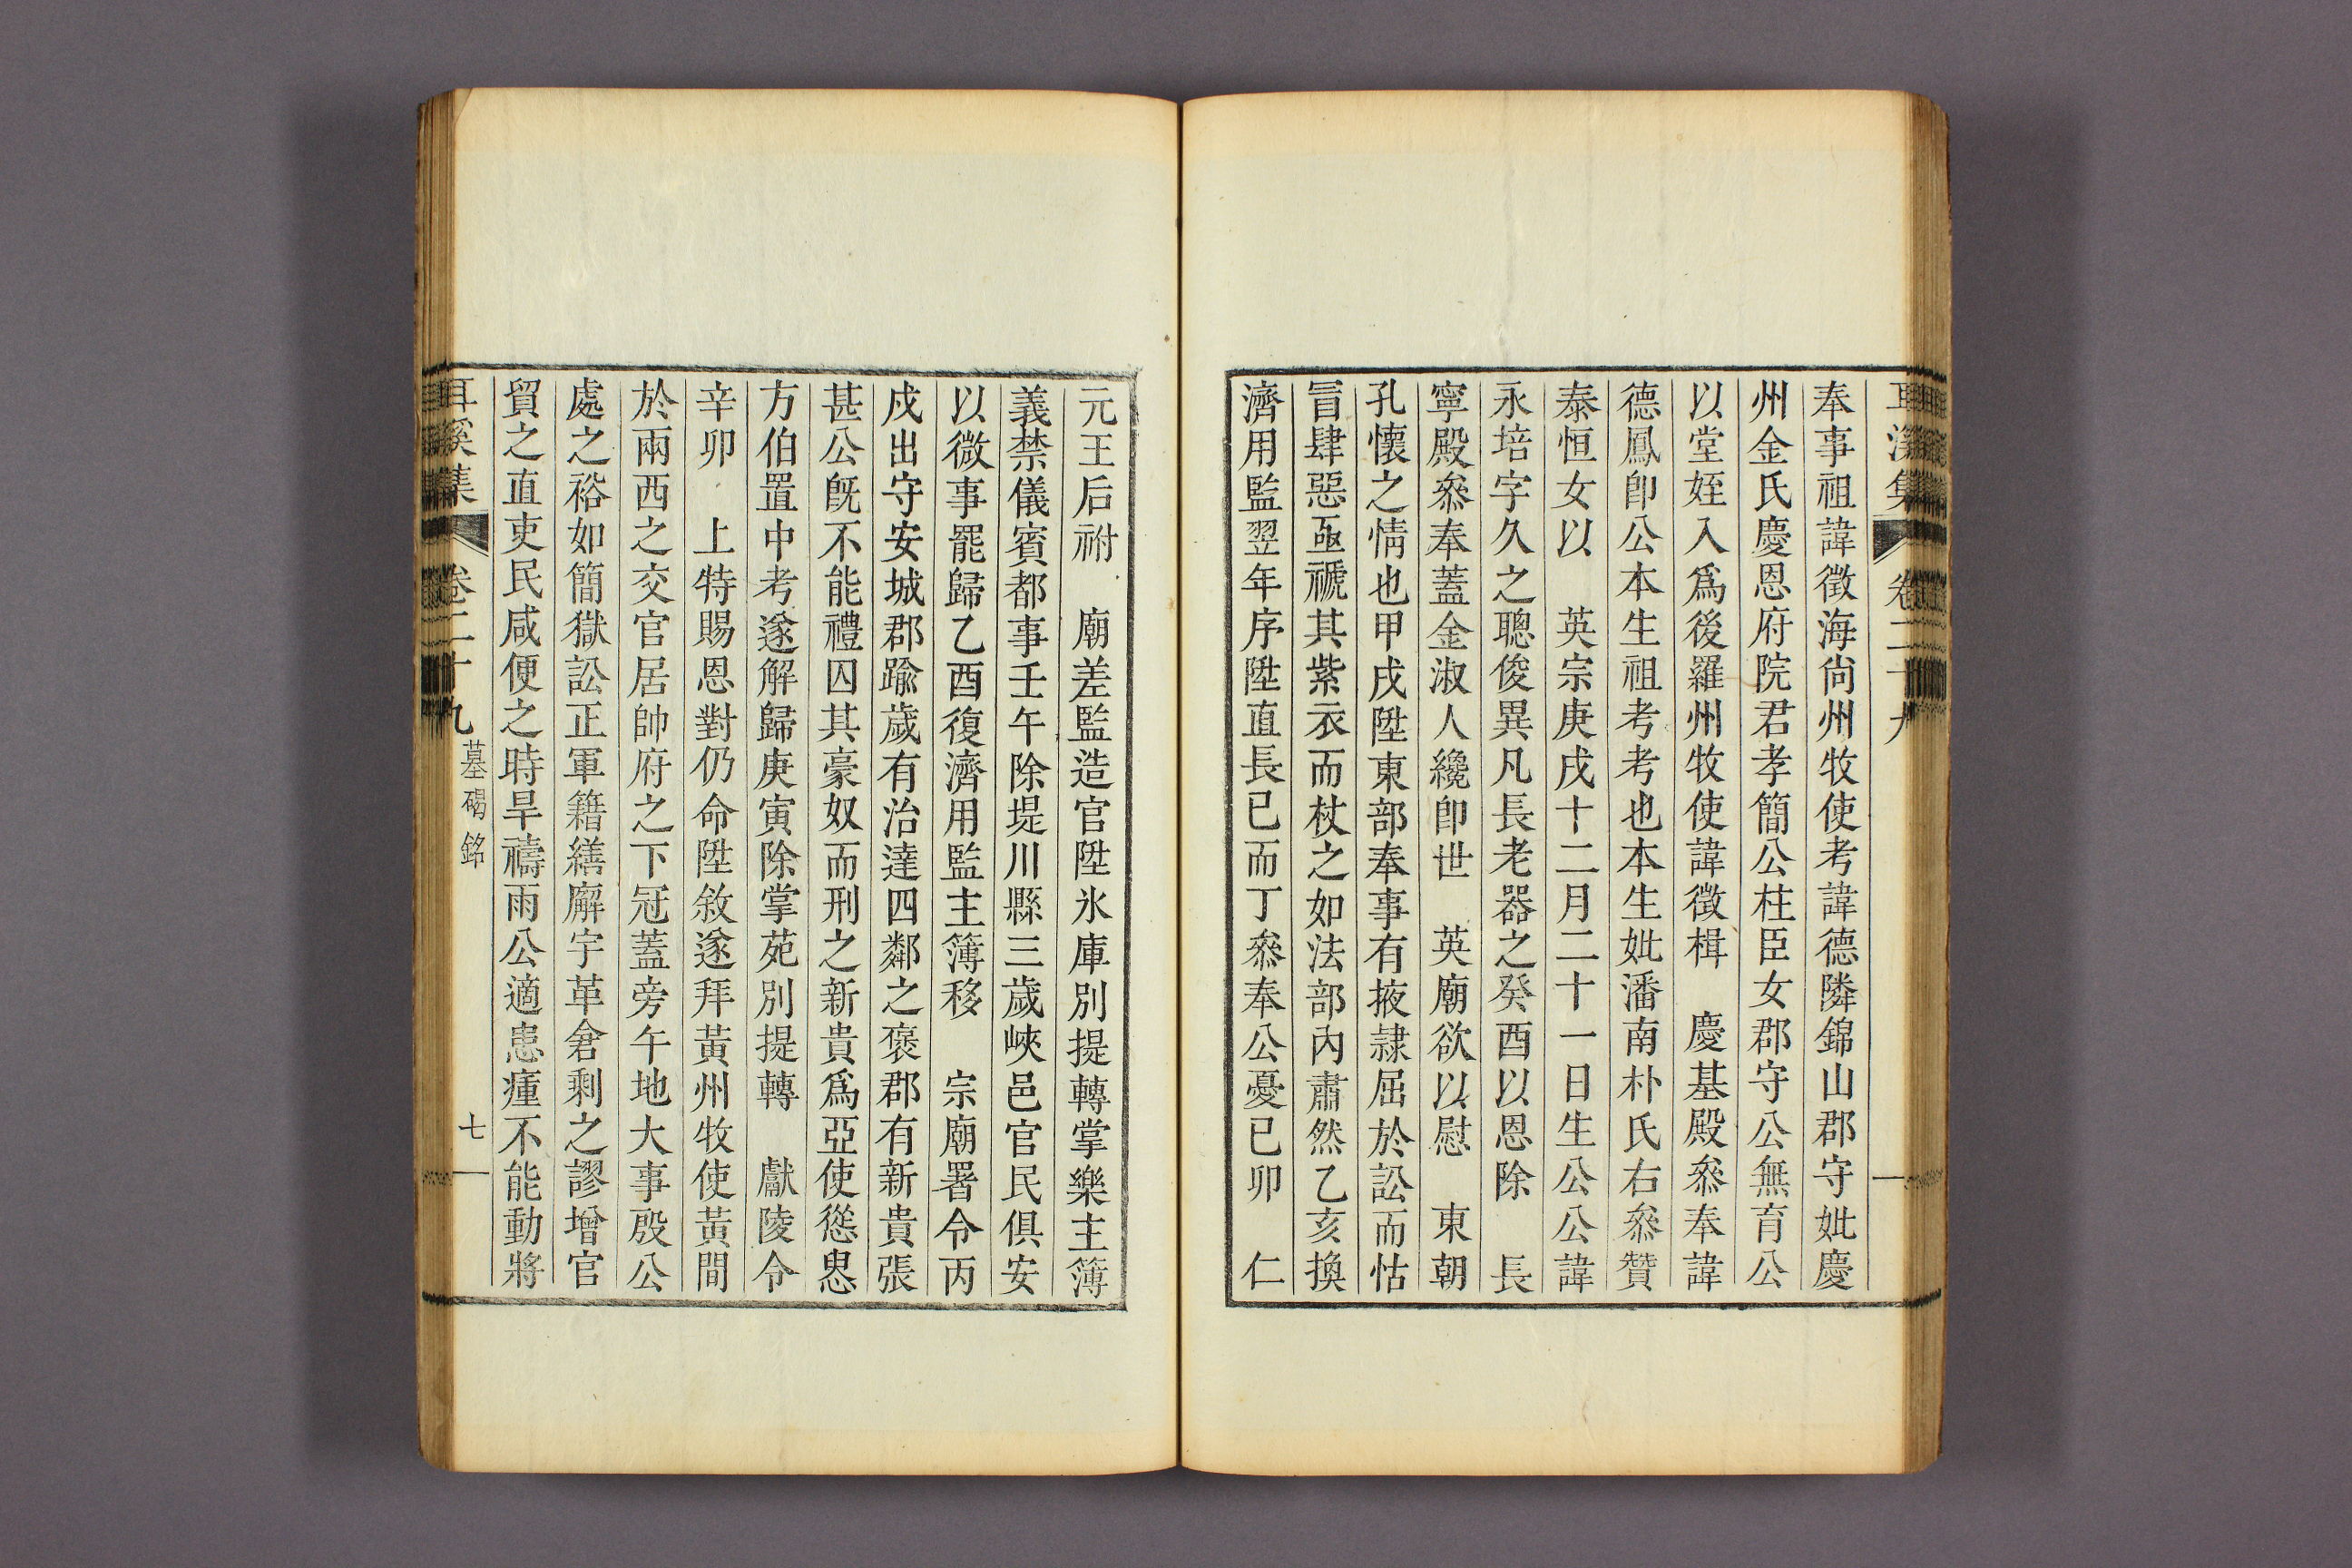 耳溪集 卷二十九
奉事祖諱徵海尙州牧使考諱德隣錦山郡守妣慶
州金氏慶恩府院君孝簡公柱臣女郡守公無育公
以堂姪入爲後羅州牧使諱徵楫 慶基殿叅奉諱
德鳳卽公本生祖考考也本生妣潘南朴氏右叅贊
泰恒女以 英宗庚戌十二月二十一日生公公諱
永培字久之聰俊異凡長老器之癸酉以恩除 長
寧殿叅奉蓋金淑人纔卽世 英廟欲以慰 東朝
孔懷之情也甲戌陞東部奉事有掖隷屈於訟而怙
冒肆惡亟褫其紫衣而杖之如法部內肅然乙亥換
濟用監翌年序陞直長已而丁叅奉公憂己卯 仁
元王后祔 廟差監造官陞氷庫別提轉掌樂主簿
義禁儀賓都事壬午除堤川縣三歲峽邑官民俱安
以微事罷歸乙酉復濟用監主簿移 宗廟署令丙
戌出守安城郡踰歲有治達四鄰之褒郡有新貴張
甚公旣不能禮囚其豪奴而刑之新貴爲亞使慫恿
方伯置中考遂解歸庚寅除掌苑別提轉 獻陵令
辛卯 上特賜恩對仍命陞敘遂拜黃州牧使黃間
於兩西之交官居帥府之下冠蓋旁午地大事殷公
處之裕如簡獄訟正軍籍繕廨宇革倉剩之謬增官
貿之直吏民咸便之時旱禱雨公適患瘇不能動將
耳溪集 卷二十九 墓碣銘 七